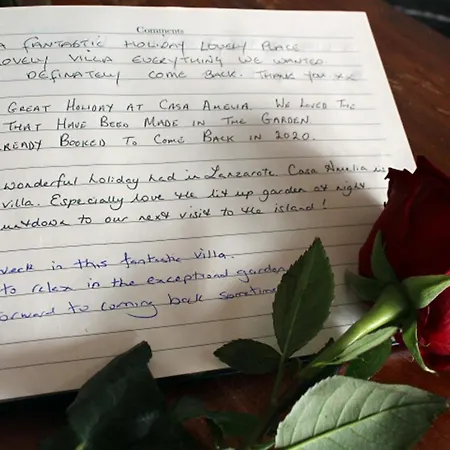 Comments
A FANTASTIC HOLIDAY LOVELY PLACE
OVELY VILLA EVERYTHING WE WANTED
DEFINATELY COME BACK. THANK YOU xx
GREAT HOLIDAY AT CASA AMELIA. WE LOVED THE
THAT HAVE BEED MADE IN THE GARDEN
READY BOOKED TO COME BACK IN 2020.
Wonderful holiday had in Lanzarote. Casa Amelia is
villa. Especially love the lit up garden at night
untdown to our next visit to the island!
week in this fantastic villa.
to relax in the exceptional garden
orward to coming back sometime